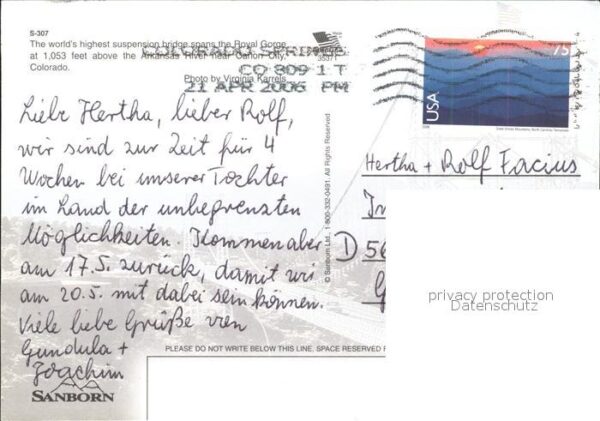 S-307
The world's highest suspension bridge spans the Royal Gorge
at 1,053 feet above the Arkansas River near Cañon City,
Colorado.
Photo by Virginia Karrels
COLORADO SPRINGS
CO 809 1 T
21 APR 2006 PM
Liebe Hertha, lieber Rolf,
wir sind zur Zeit für 4
Wochen bei unserer Tochter
im Land der unbegrenzten
Möglichkeiten. Kommen aber
am 17.5. zurück, damit wir
am 20.5. mit dabei sein können.
Viele liebe Grüße von
Gundula +
Joachim
SANBORN
© Sanborn Ltd., 1-800-332-0491. All Rights Reserved
35371
75
USA
Hertha + Rolf Facius
D 56
privacy protection
Datenschutz
PLEASE DO NOT WRITE BELOW THIS LINE. SPACE RESERVED